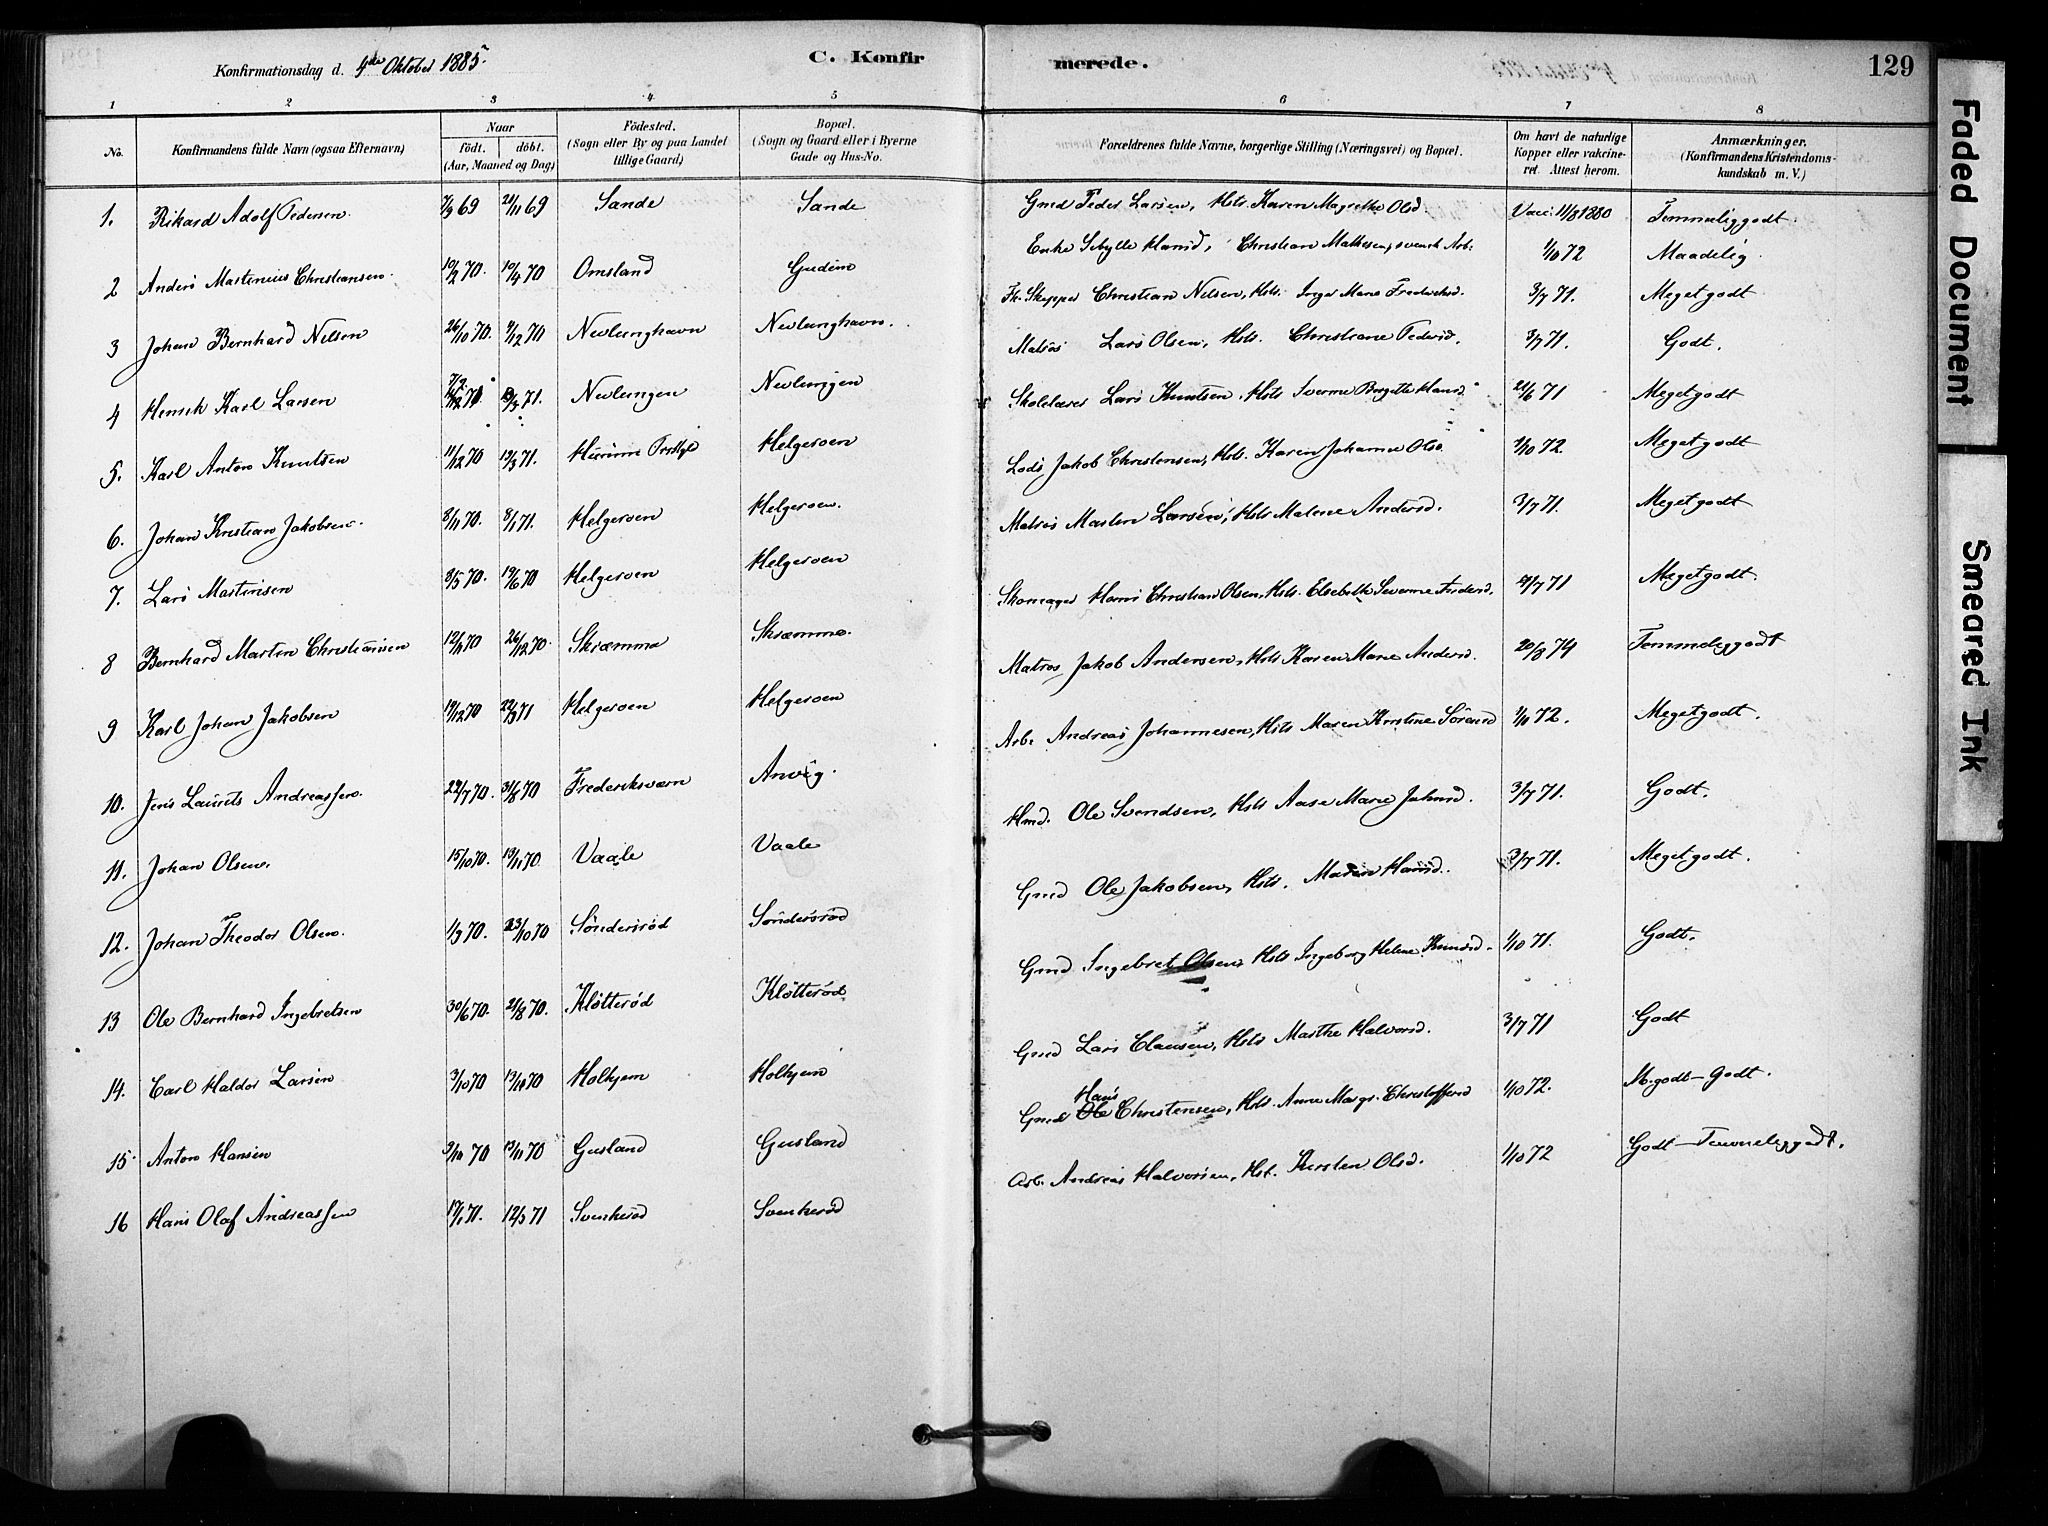 Konfirmationsdag d. 4de Oktober 1885.
C. Konfirmerede.
129
1 2 3 4 5 6 7 8
No.
Konfirmandens fulde Navn (ogsaa Efternavn)
Naar
födt. döbt.
(Aar, Maaned og Dag)
Födested.
(Sogn eller By og paa Landet
tillige Gaard)
Bopæl.
(Sogn og Gaard eller i Byerne
Gade og Hus-No.
Forældrenes fulde Navne, borgerlige Stilling (Næringsvei) og Bopæl.
Om havt de naturlige
Kopper eller vakcine-
ret. Attest herom.
Anmærkninger.
(Konfirmandens Kristendoms-
kundskab m. V.)
1. Rikard Adolf Pedersen. 7/9 69 21/11 69 Sande Sande Gmd Peder Larsen, Hstr. Karen Magrethe Olsd. Vacc. 11/8 1880 Temmeliggodt.
2 Anders Martinius Christiansen. 10/2 70. 10/4 70 Omsland Gudem Enke Sibylle Hansd, Christian Mathesen, svensk Arb. 1/10 72 Maadelig.
3 Johan Bernhard Nilsen 26/10 70. 4/12 70 Nevlunghavn Nevlunghavn. Fh. Skipper Christian Nilsen, Hstr. Inger Marie Frederiksd. 3/7 71. Megetgodt
4 Henrik Karl Larsen 71. Nevlungen Nevlungen Matros Lars Olsen, Hstr. Christiane Pedersd. 3/7 71. Godt.
5. Karl Anton Knutsen 11/12 70 19/3 71. Helgeroen Skolelærer Lars Knutsen, Hstr Severine Birgitte Hansd 21/6 71 Megetgodt
6. Johan Kristian Jakobsen. 8/11 70. 8/1 71. Helgeroen Helgeroen. Lods Jakob Christensen, Hstr. Karen Johanne Olsd 1/10 72. Megetgodt
7. Lars Martinsen 8/5 70. 19/6 70 Helgeroen Helgeroen Matros Martin Larsen, Hstr Malene Andersd. 3/7 71. Megetgodt
8 Bernhard Martin Christiansen 12/11 70 26/12 70. Skræmme Skræmme. Skomager Hans Christian Olsen, Hstr. Elsebethe Severine Andersd. 71 Megetgodt.
9 Karl Johan Jakobsen 19/12 70 71 Helgeroen Helgeroen Matros Jakob Andersen, Hstr Karen Marie Andersd. 20/8 74 Temmeliggodt
10. Jens Laurits Andreassen. 29/7 70. 31/8 70 Frederiksværn Anvig. Arb. Andreas Johannesen, Hstr Maren Kirstine Sörensd 72. Megetgodt.
11. Johan Olsen. 15/10 70. 13/11 70 Vaale Vaale Hmd. Ole Svendsen, Hstr Aase Marie Johnsd. 3/7 71. Godt.
12. Johan Theodor Olsen. 1/9 70. 23/10 70 Söndersröd Söndersröd Gmd Ole Jakobsen, Hstr. Maren Hansd. 3/7 71. Megetgodt.
13 Ole Bernhard Ingebretsen 30/6 70. 21/8 70. Klötteröd Klötteröd Gmd Ingebret Olsen, Hstr Ingeborg Helene Knutsd. 1/10 71. Godt.
14. Carl Haldor Larsen 3/10 70 70 Holhjem Holhjem Gmd Lars Clausen, Hstr Marthe Halvorsd. 3/7 71 Godt
15. Anton Hansen 70 13/11 70 Gusland Gusland Gmd Ole Hans Christensen, Hstr. Anne Margr. Christoffersd 1/10 72. M.godt–Godt.
16 Hans Olaf Andreassen 17/1 71. 12/3 71 Svenkeröd Svenkeröd Arb. Andreas Halvorsen, Hst. Kirsten Olsd. 1/10 72 Godt–Temmeliggodt.
Faded Document
Smeared Ink